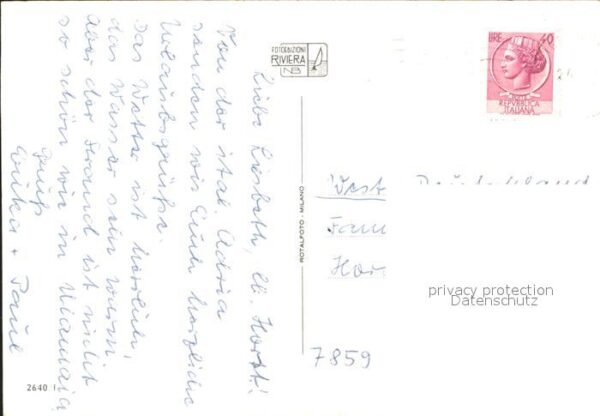 Liebe Liesbeth, lb. Horst!
Von der ital. Adria
senden wir Euch herzliche
Urlaubsgrüße.
Das Wetter ist herrlich,
das Wasser sehr warm.
Aber der Strand ist nicht
so schön wie in
Gruß
Erika + Paul
FOTOEDIZIONI
RIVIERA
NB
LIRE 40
REPVBBLICA
ITALIANA
ROTALFOTO - MILANO
West Deutschland
Fam
Hor
privacy protection
Datenschutz
7859
2640